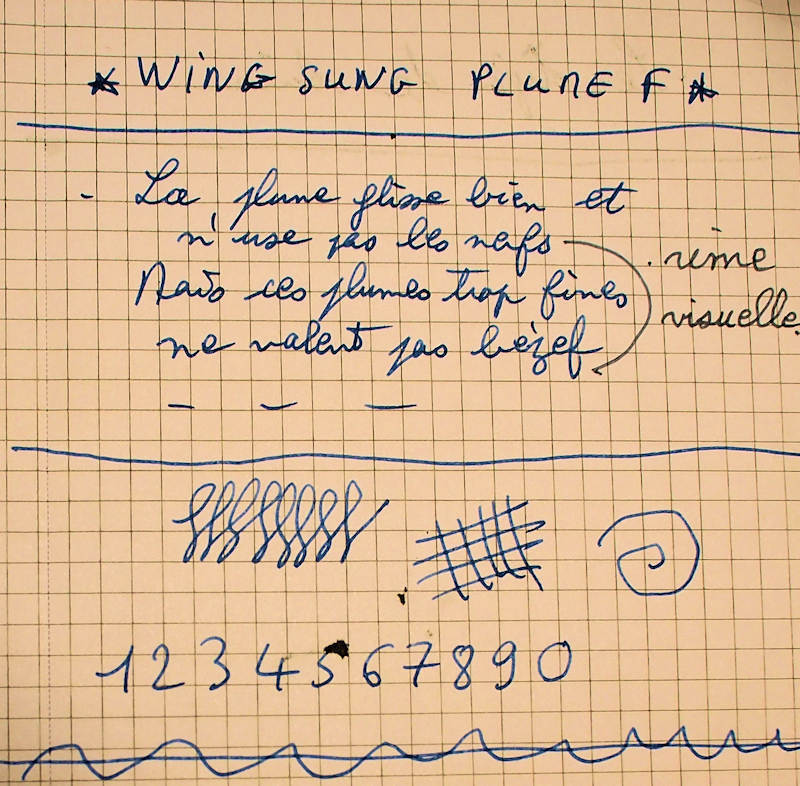 * WiNG SUNG PLUME F *
- La plume glisse bien et
n'use pas les nafs
Mais ces plumes trop fines
ne valent pas bézef
. rime
visuelle.
1 2 3 4 5 6 7 8 9 0